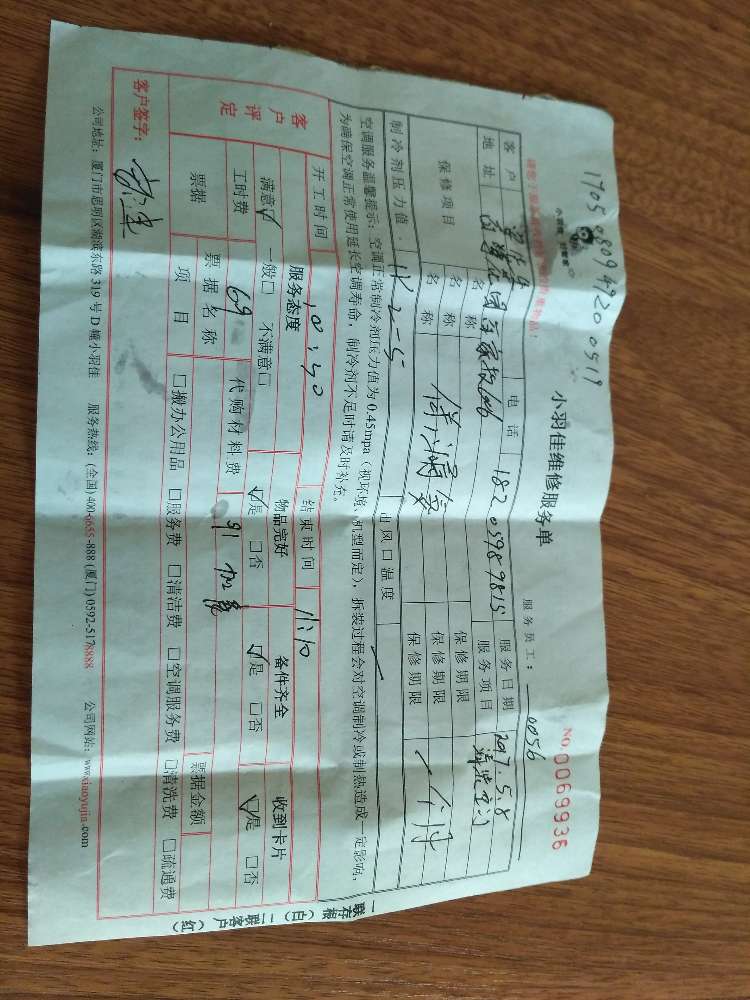 170508094920 0519
小羽佳维修服务单
服务员工: 0056
NO.0069936
客户 电话 18205989815 服务日期 2017.5.8
地址 服务项目
保修项目 名称 保修期限
名称 保修期限 一个月
制冷剂压力值: 出风口温度
空调服务温馨提示: 空调正常制冷剂压力值为0.45mpa (视环境、机型而定), 拆装过程会对空调制冷或制热造成一定影响,
为确保空调正常使用延长空调寿命, 制冷剂不足时请及时补充。
开工时间 10:30 结束时间 11:10
客户评定 服务态度 物品完好 备件齐全 收到卡片
满意☑ 一般□ 不满意□ ☑是 □否 ☑是 □否 ☑是 □否
工时费 69 代购材料费 91
票据 票据名称 票据金额
项目 □搬办公用品 □服务费 □清洁费 □空调服务费 □清洗费 □疏通费
客户签字:
公司地址: 厦门市思明区湖滨东路319号D幢小羽佳 服务热线: (全国)400-6655-888 (厦门)0592-5178888 公司网站: www.xiaoyujia.com
一联存根(白) 二联客户(红)